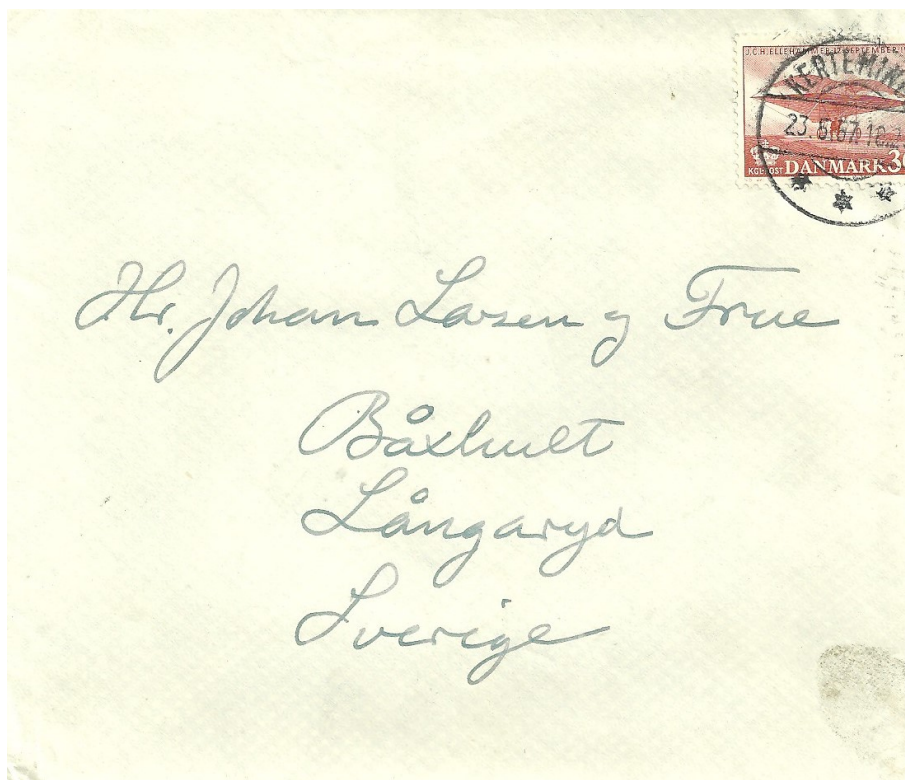 J.C.H. ELLEHAMMER 12 SEPTEMBER
KERTEMIN
23.8.57.18.2
KGL POST DANMARK 30
Hr. Johan Larsen og Frue
Båxhult
Långaryd
Sverige